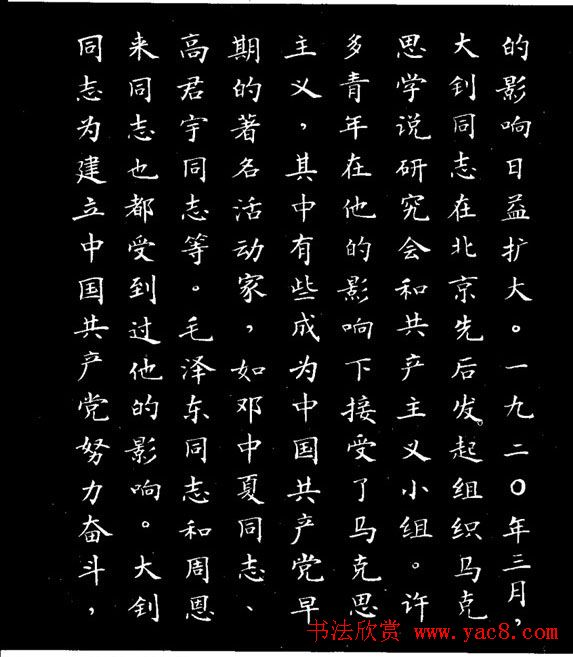 的影响日益扩大。一九二〇年三月，
大钊同志在北京先后发起组织马克
思学说研究会和共产主义小组。许
多青年在他的影响下接受了马克思
主义，其中有些成为中国共产党早
期的著名活动家，如邓中夏同志、
高君宇同志等。毛泽东同志和周恩
来同志也都受到过他的影响。大钊
同志为建立中国共产党努力奋斗，
书法欣赏 www.yac8.com